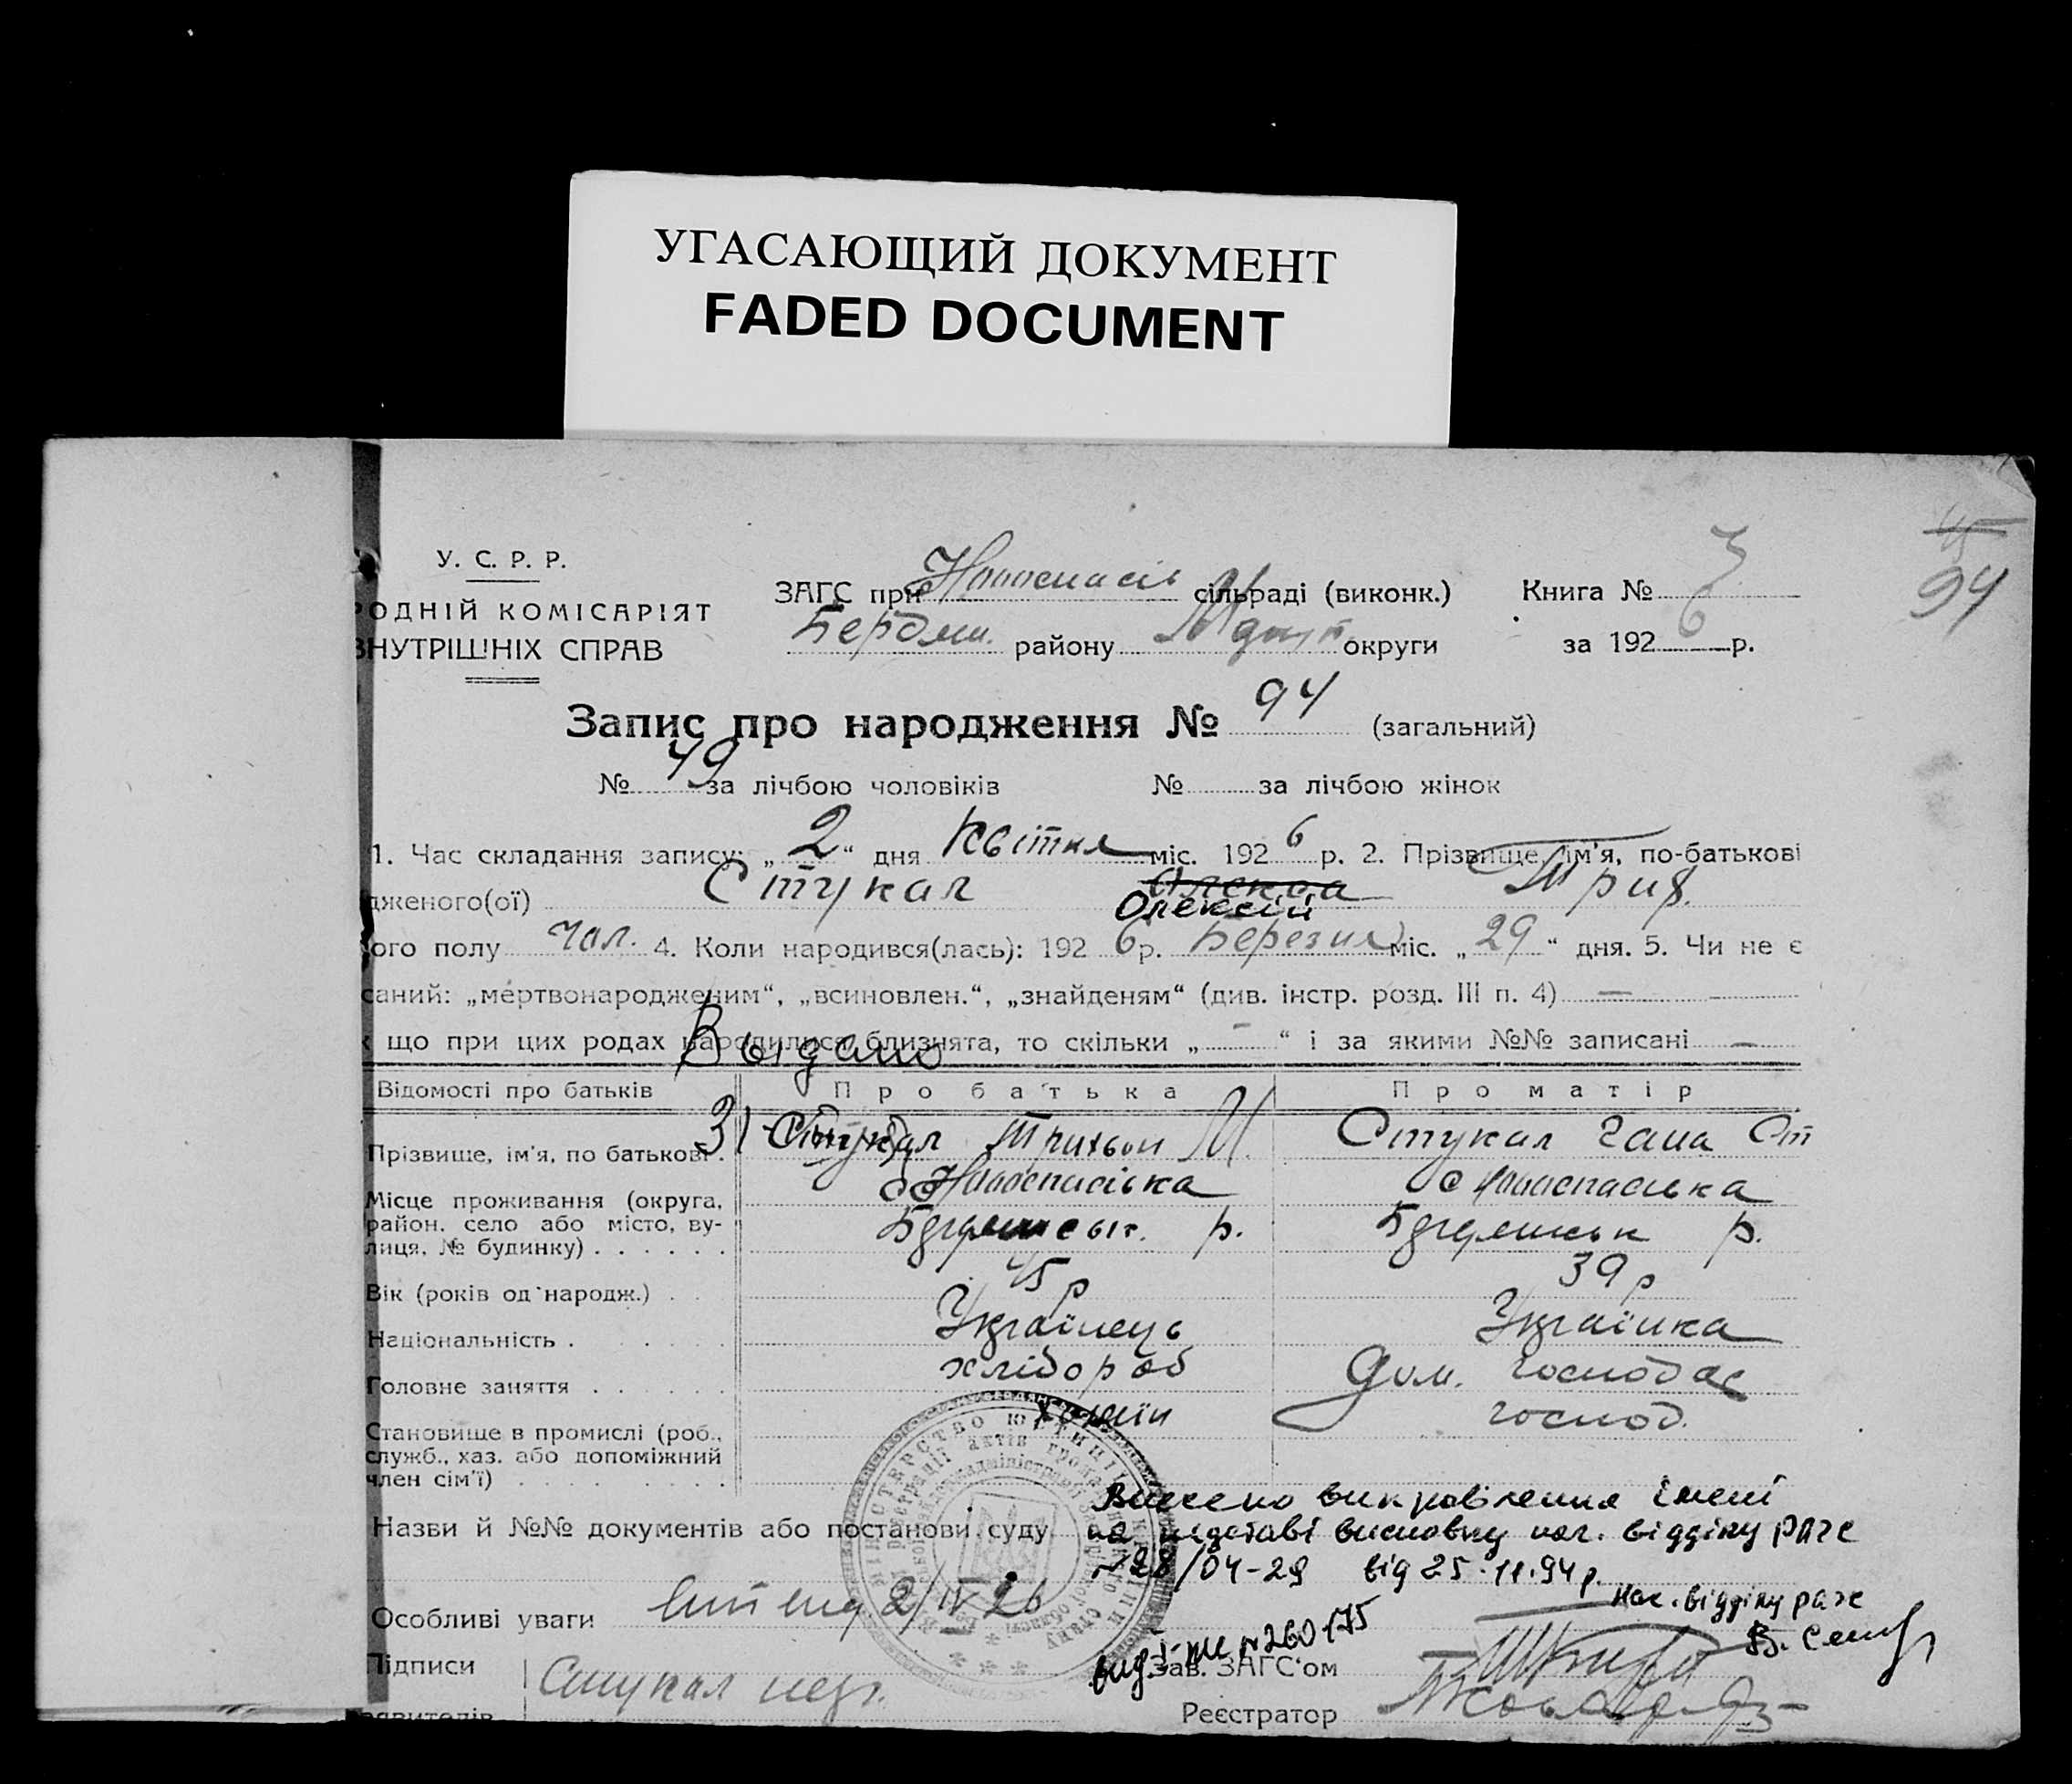 УГАСАЮЩИЙ ДОКУМЕНТ
FADED DOCUMENT
94
У. С. Р. Р.
РОДНІЙ КОМІСАРІЯТ
ВНУТРІШНІХ СПРАВ
ЗАГС при Новоспасів сільраді (виконк.)
Бердян. району округи
Книга № 3
за 1926 р.
Запис про народження № 94 (загальний)
№ 49 за лічбою чоловіків № за лічбою жінок
1. Час складання запису: „2“ дня Квітня міс. 1926 р. 2. Прізвище, ім'я, по-батькові
дженого(ої) Стукал Олекса Триф.
Олексій
ого полу чол. 4. Коли народився(лась): 1926 р. Березня міс. „29“ дня. 5. Чи не є
саний: „мертвонародженим“, „всиновлен.“, „знайденям“ (див. інстр. розд. III п. 4) —
що при цих родах народилися близнята, то скільки „—“ і за якими №№ записані —
Выдано
Відомості про батьків Про батька Про матір
Прізвище, ім'я, по батькові. Стукал Трихвон М. Стукал Гана Ст
Місце проживання (округа, район, село або місто, вулиця, № будинку) с Новоспасівка с Новоспасівка
Бердянськ. р. Бердянськ р.
Вік (років од народж.) 45 р 39 р
Національність Українець Українка
Головне заняття хлібороб Дом. господар
Становище в промислі (роб., служб., хаз. або допоміжний член сім'ї) хазяїн господ.
Внесено виправлення імені
Назви й №№ документів або постанови суду на підставі висновку нач. відділу РАГС
№28/04-29 від 25.11.94р.
нач. відділу рагс
Особливі уваги 2/IV 26
№260175
В.
Підписи Стукал
Зав. ЗАГС'ом
явителів
Реєстратор